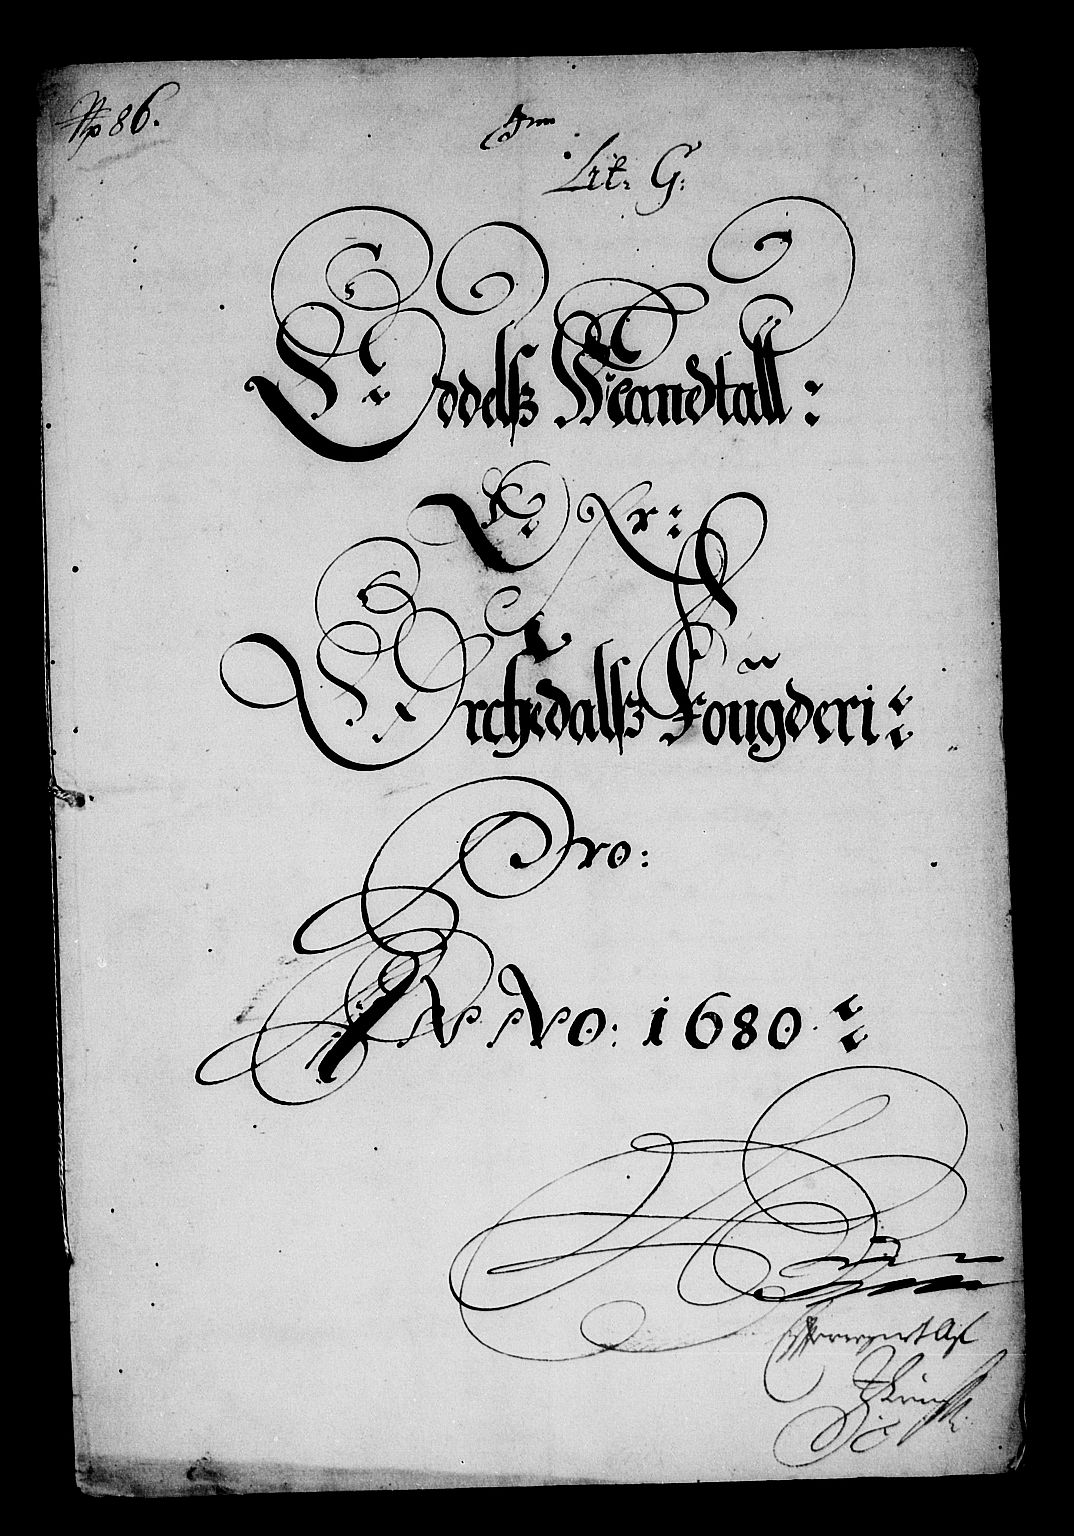 No 86.
Lit. G:
Oddelsz Mandtall:
Ofr:
Orchedalsz Fougderi:
Pro:
ANNO: 1680